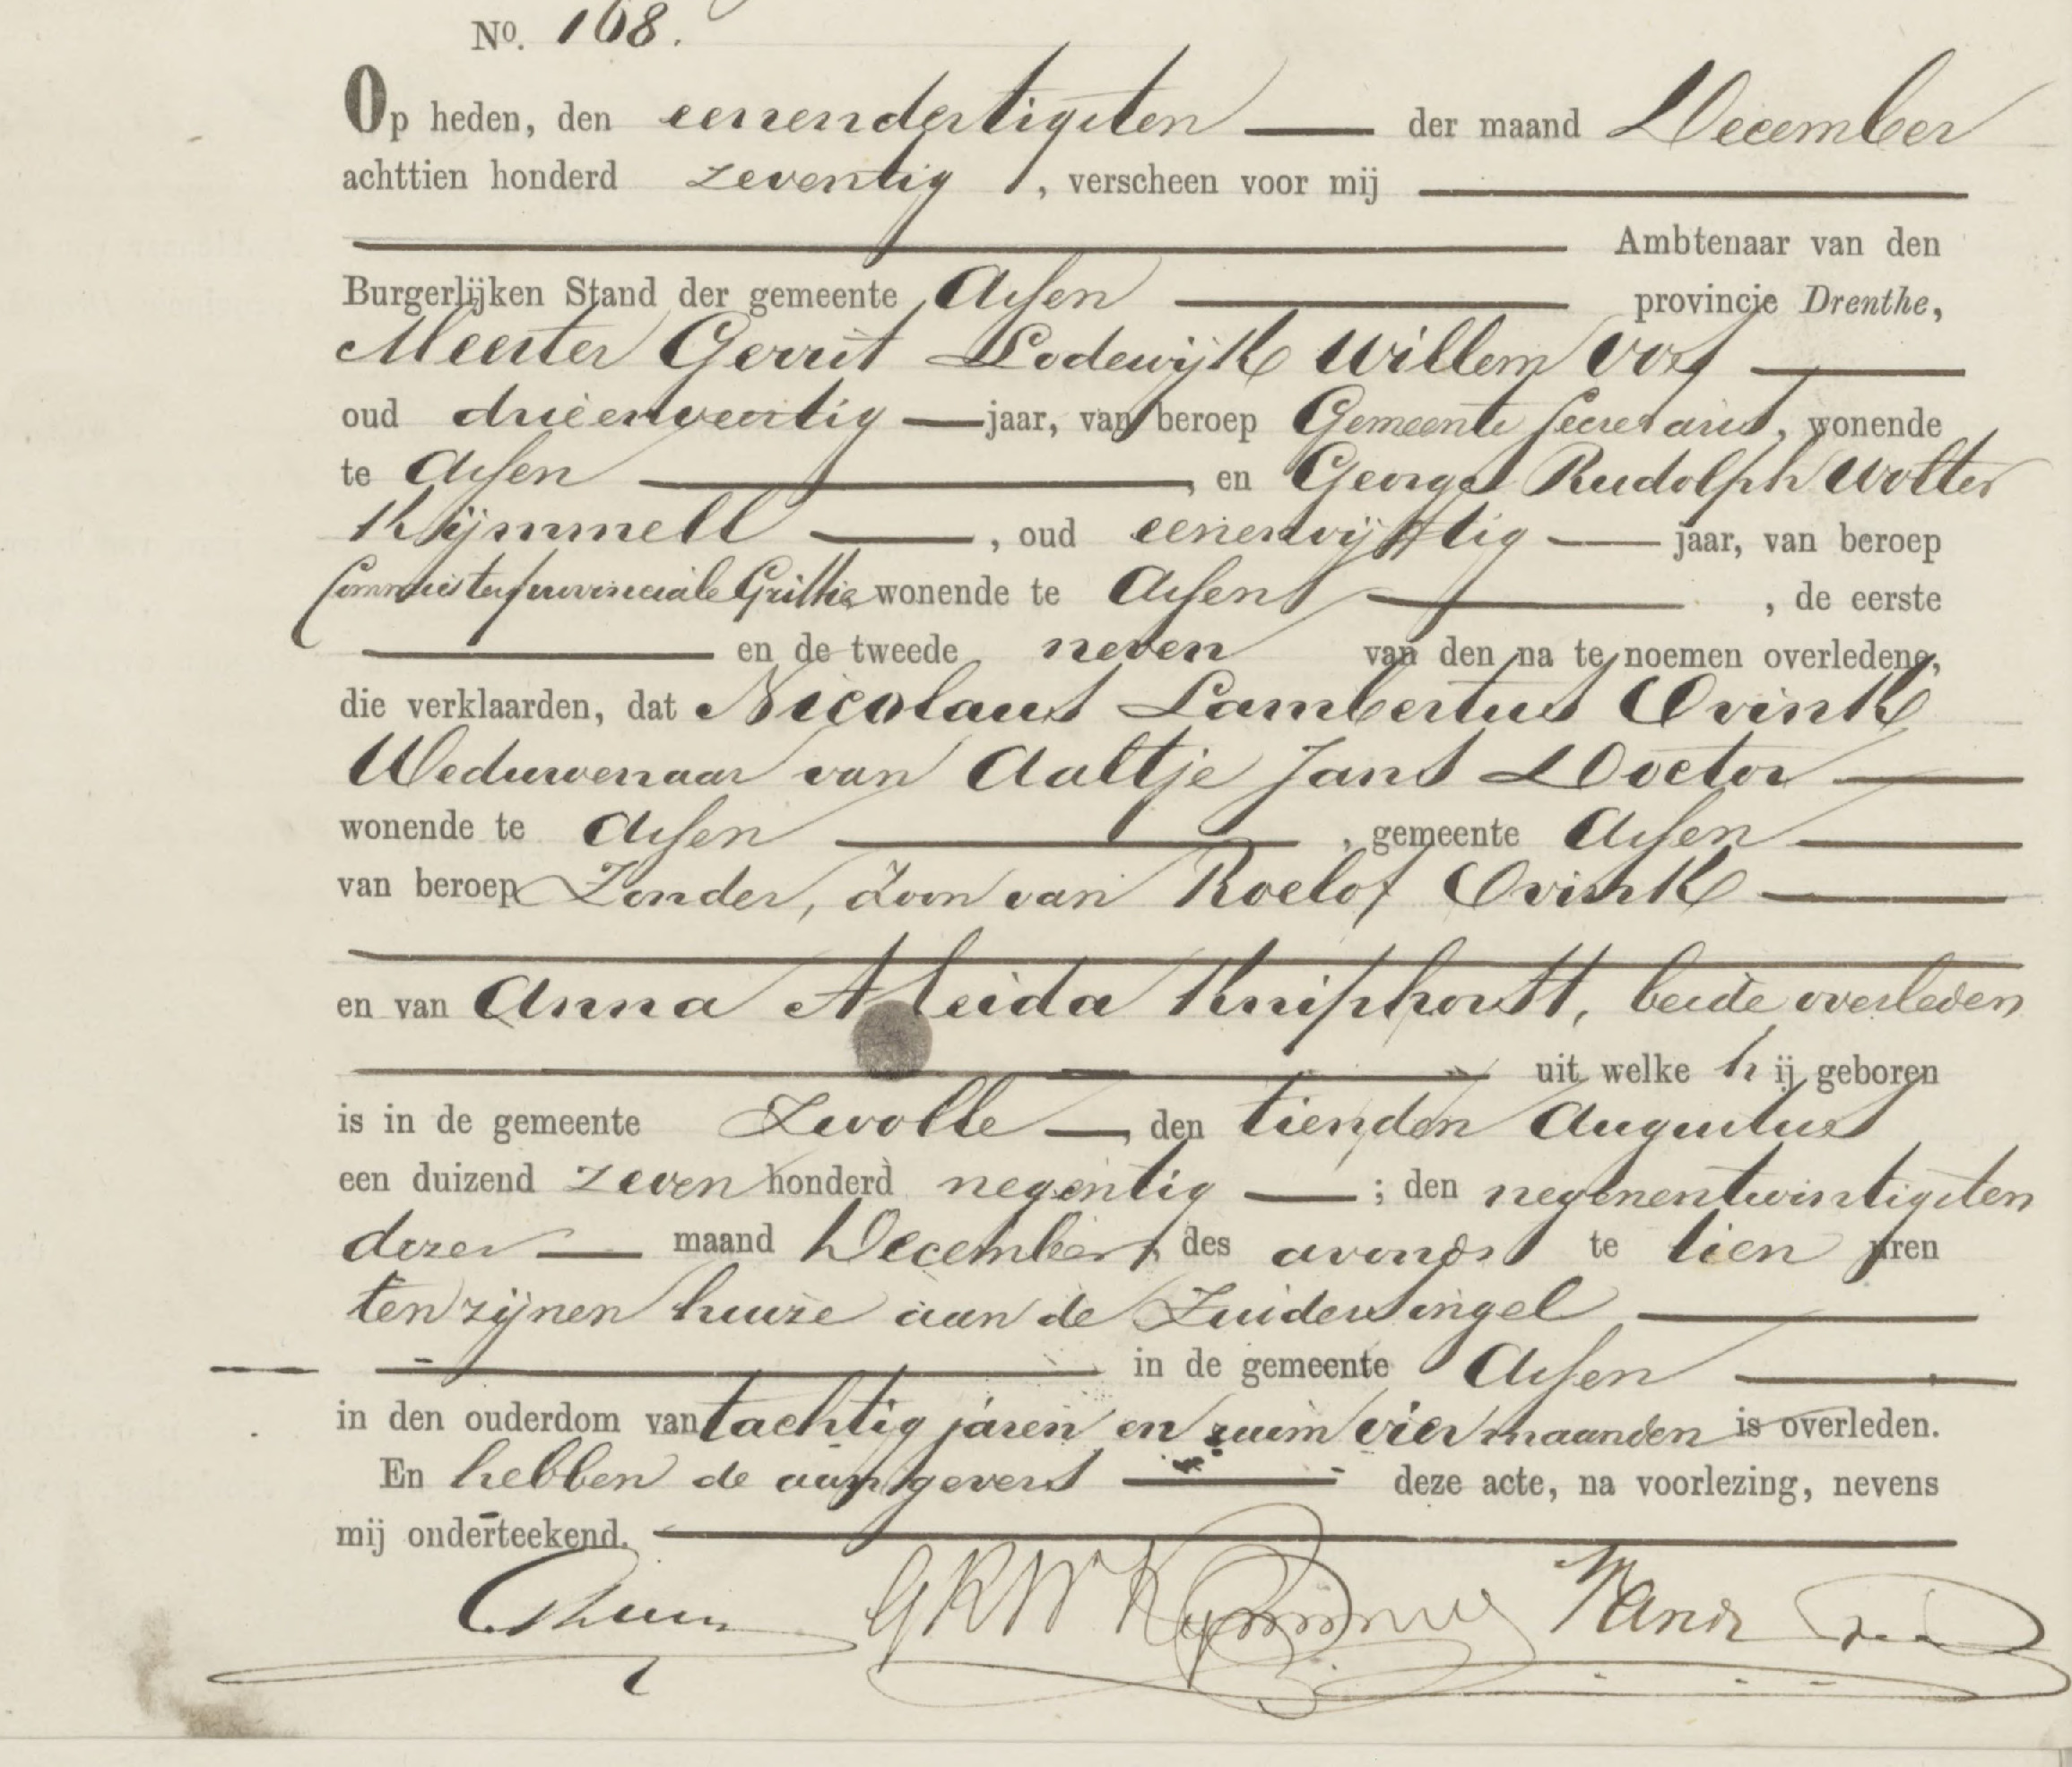 No. 168.
Op heden, den eenendertigsten der maand December
achttien honderd zeventig, verscheen voor mij
Ambtenaar van den
Burgerlijken Stand der gemeente Assen provincie Drenthe,
Meester Gerrit Lodewijk Willem Vos
oud drieenveertig jaar, van beroep Gemeente Secretaris, wonende
te Assen, en George Rudolph Wolter
Kijmmell, oud eenenvijftig jaar, van beroep
Commies ter provinciale Griffie wonende te Assen, de eerste
en de tweede neven van den na te noemen overledene,
die verklaarden, dat Nicolaus Lambertus Ovink
Weduwenaar van Aaltje Jans Doctor
wonende te Assen, gemeente Assen
van beroep Zonder, Zoon van Roelof Ovink
en van Anna Aleida Kniphorst, beide overleden
uit welke hij geboren
is in de gemeente Zwolle, den tienden Augustus
een duizend zeven honderd negentig; den negenentwintigsten
dezer maand December, des avonds te tien uren
ten zijnen huize aan de Zuidersingel
in de gemeente Assen
in den ouderdom van tachtig jaren en ruim vier maanden is overleden.
En hebben de aangevers deze acte, na voorlezing, nevens
mij onderteekend.
GRW Kymmell